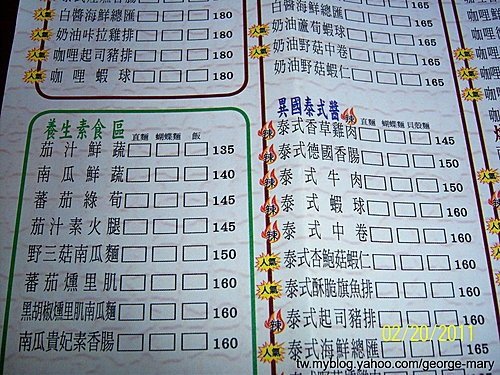 白醬海鮮總匯 180
人氣 奶油咔拉雞排 180
人氣 咖哩起司豬排 180
人氣 咖哩蝦球 180
養生素食區 直麵 蝴蝶麵 飯
茄汁鮮蔬 135
南瓜鮮蔬 140
蕃茄綠筍 145
茄汁素火腿 145
野三菇南瓜麵 150
蕃茄燻里肌 160
黑胡椒燻里肌南瓜麵 160
南瓜貴妃素香腸 160
白醬海鮮總匯 165
奶油蘆筍蝦球 165
人氣 奶油野菇中卷 165
奶油野菇蝦仁 165
異國泰式醬 辣 直麵 蝴蝶麵 貝殼麵
辣 泰式香草雞肉 145
辣 泰式德國香腸 150
辣 泰式牛肉 150
辣 泰式蝦球 160
辣 泰式中卷 160
人氣 泰式杏鮑菇蝦仁 160
人氣 泰式酥脆旗魚排 160
辣 泰式起司豬排 160
人氣 泰式海鮮總匯 165
02/20/2011
tw.myblog.yahoo.com/george-mary